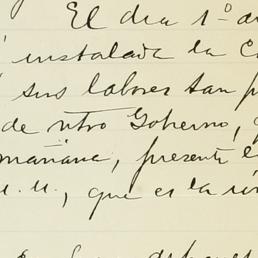 El dia 1º de
instalada la C
sus labores tan p
de ntro Gobierno,
mañana, presente e
M. M., que es la